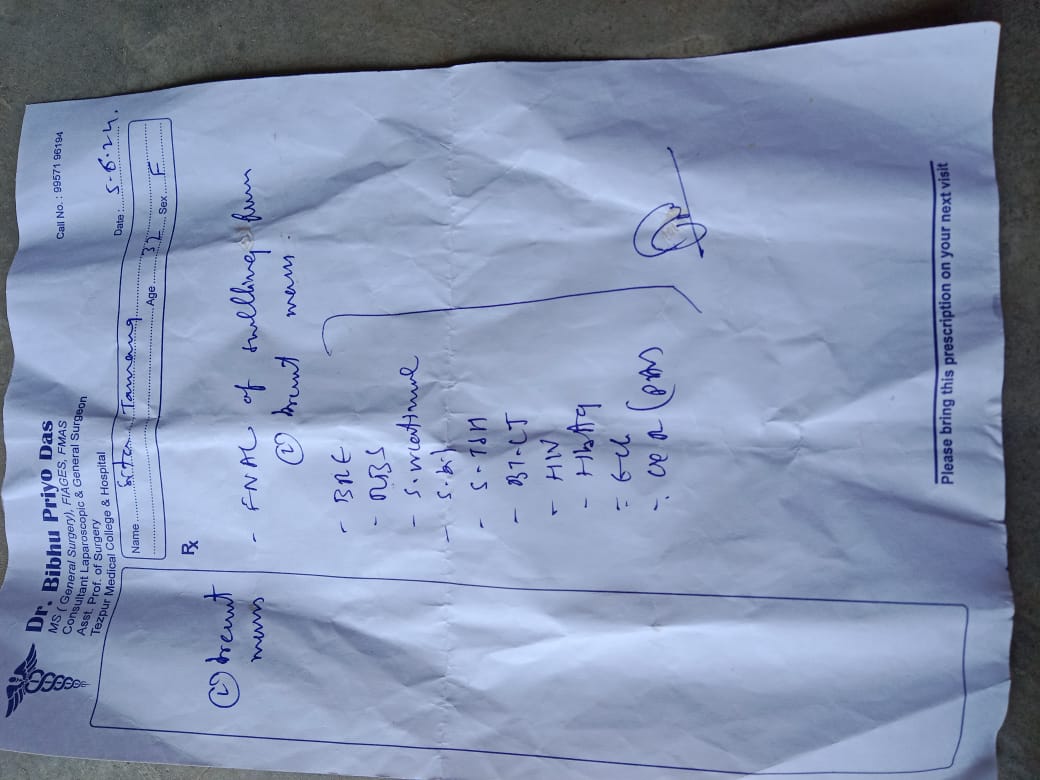 Dr. Bibhu Priyo Das
MS ( General Surgery), FIAGES, FMAS
Consultant Laparoscopic & General Surgeon
Asst. Prof. of Surgery
Tezpur Medical College & Hospital
Call No. : 99571 96194
Date : 5.6.24.
Name Sita Tamang
Age 32 Sex F
Rx
(L) breast
mass
- FNAC of swelling from
(L) breast mass.
- BRE
- RBS
- S. creatinine
- S. bil
- S-TSH
- BT-CT
- HIV
- HbsAg
- ECG
- CXR (PA)
Please bring this prescription on your next visit